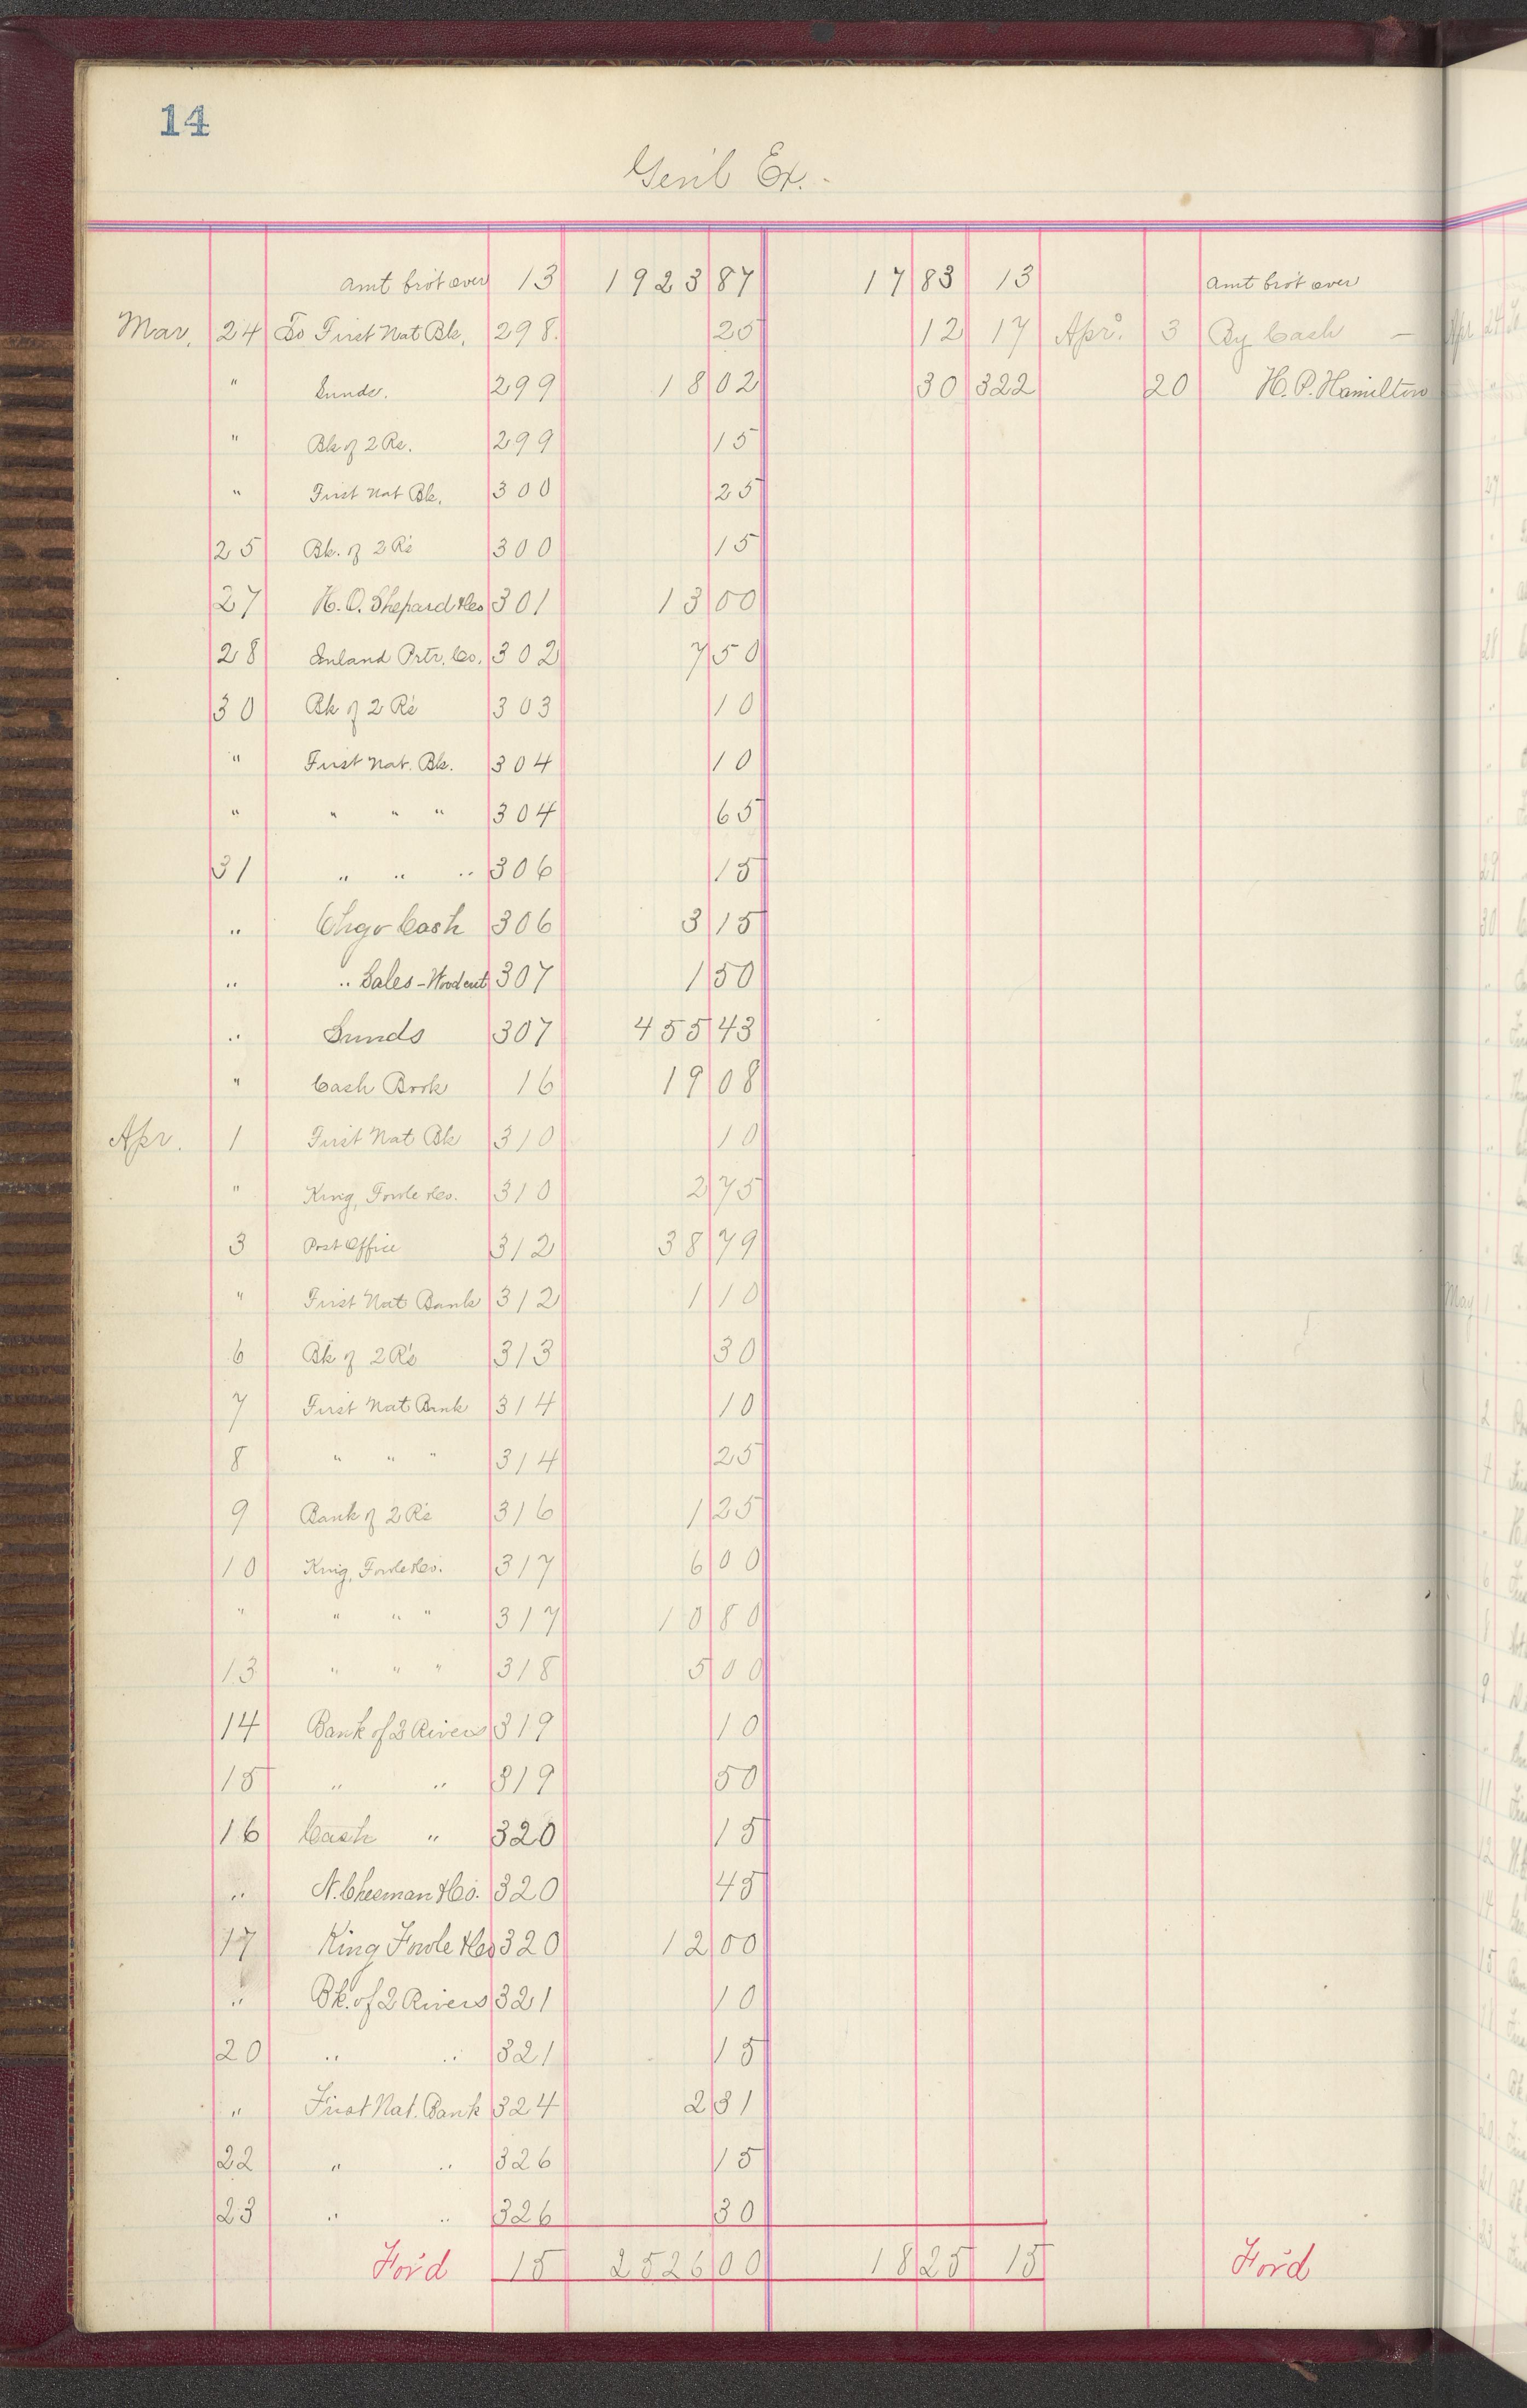 14
Gen'l Ex. -
amt bro't over 13 1923 87 17 83 13 amt bro't over
Mar. 24 To First Nat Bk. 298. 25 12 17 Apr. 3 By Cash —
" Sunds. 299 18 02 30 322 20 H. P. Hamilton
" Bk of 2 Rs. 299 15
" First Nat Bk. 300 25
25 Bk. of 2 Rs 300 15
27 H. O. Shepard & Co 301 13 00
28 Inland Prtr. Co. 302 7 50
30 Bk of 2 Rs 303 10
" First Nat. Bk. 304 10
" " " " 304 65
31 " " " 306 15
" Chgo Cash 306 3 15
" " Sales - Wood cut 307 1 50
" Sunds 307 455 43
" Cash Book 16 19 08
Apr. 1 First Nat Bk 310 10
" King, Fowle & Co. 310 2 75
3 Post Office 312 38 79
" First Nat Bank 312 1 10
6 Bk of 2 Rs 313 30
7 First Nat Bank 314 10
8 " " " 314 25
9 Bank of 2 Rs 316 1 25
10 King, Fowle & Co. 317 6 00
" " " " 317 10 80
13 " " " 318 5 00
14 Bank of 2 Rivers 319 10
15 " " 319 50
16 Cash " 320 15
" N. Cheeman & Co. 320 45
17 King Fowle & Co 320 12 00
" Bk. of 2 Rivers 321 10
20 " " 321 15
" First Nat. Bank 324 2 31
22 " " 326 15
23 " " 326 30
For'd 15 2526 00 18 25 15 For'd
May